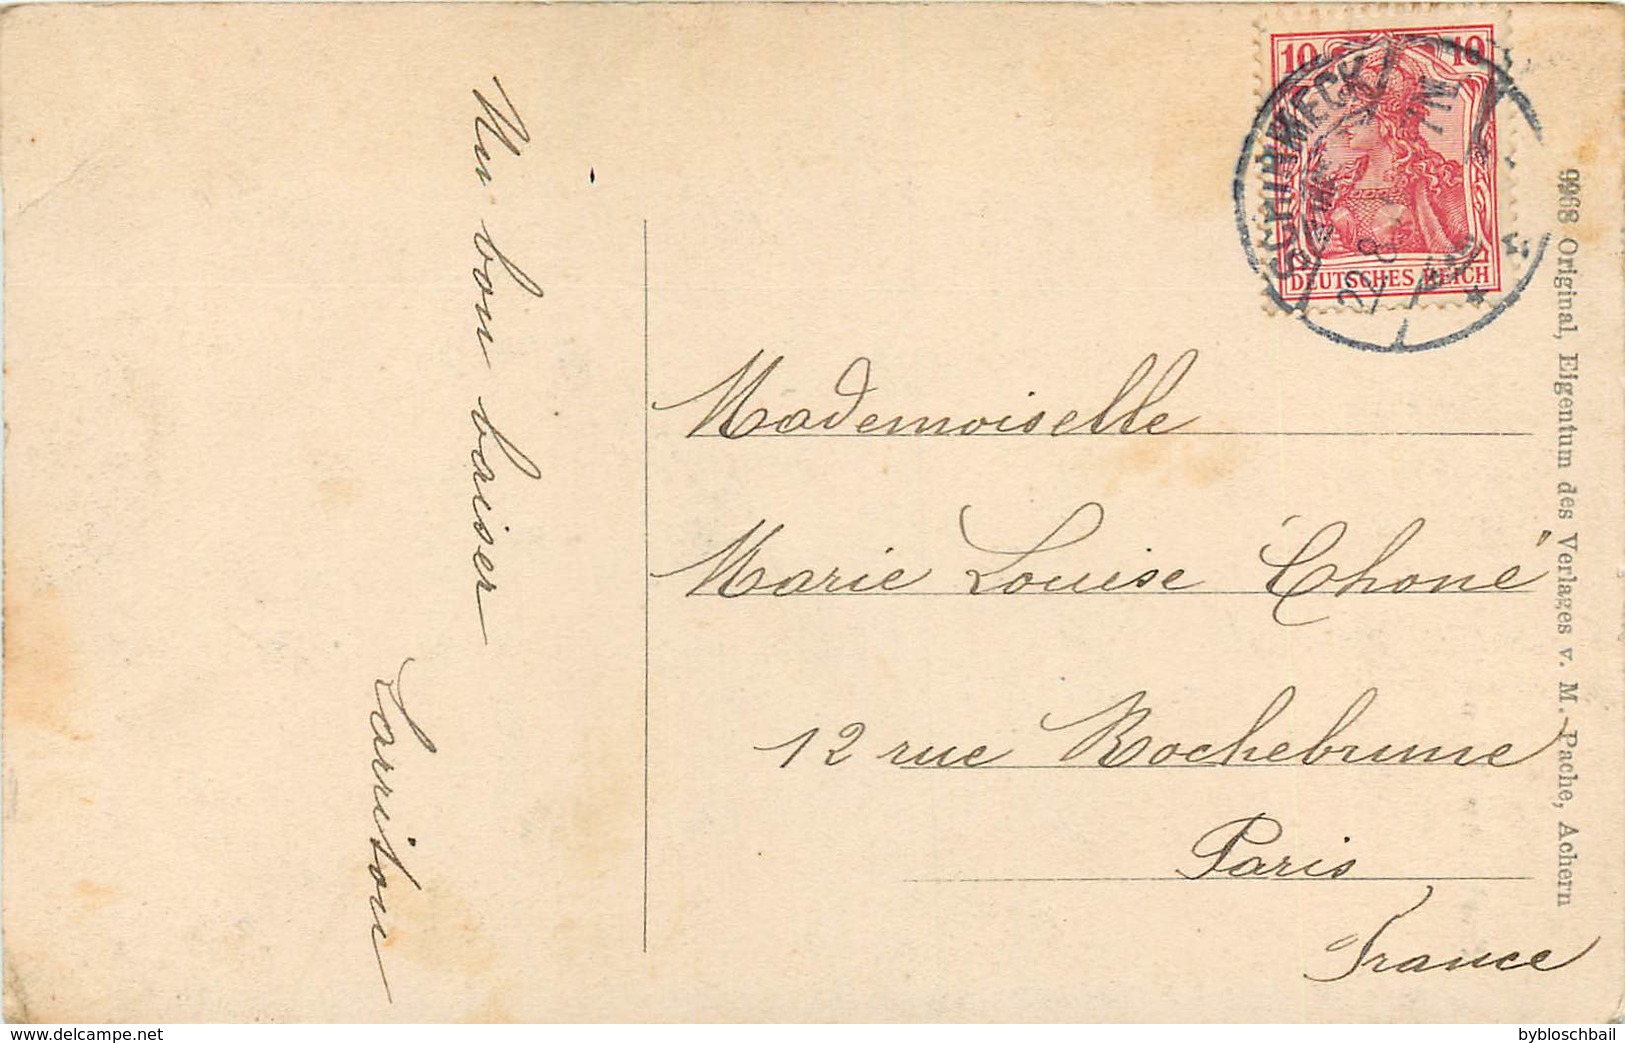 Un bon baiser
Mademoiselle
Marie Louise Choné
12 rue Rochebrune
Paris
France
10 10
DEUTSCHES REICH
SCHIRMECK
22 8
9968 Original, Eigentum des Verlages v. M. Pache, Achern
www.delcampe.net
bybloschbail